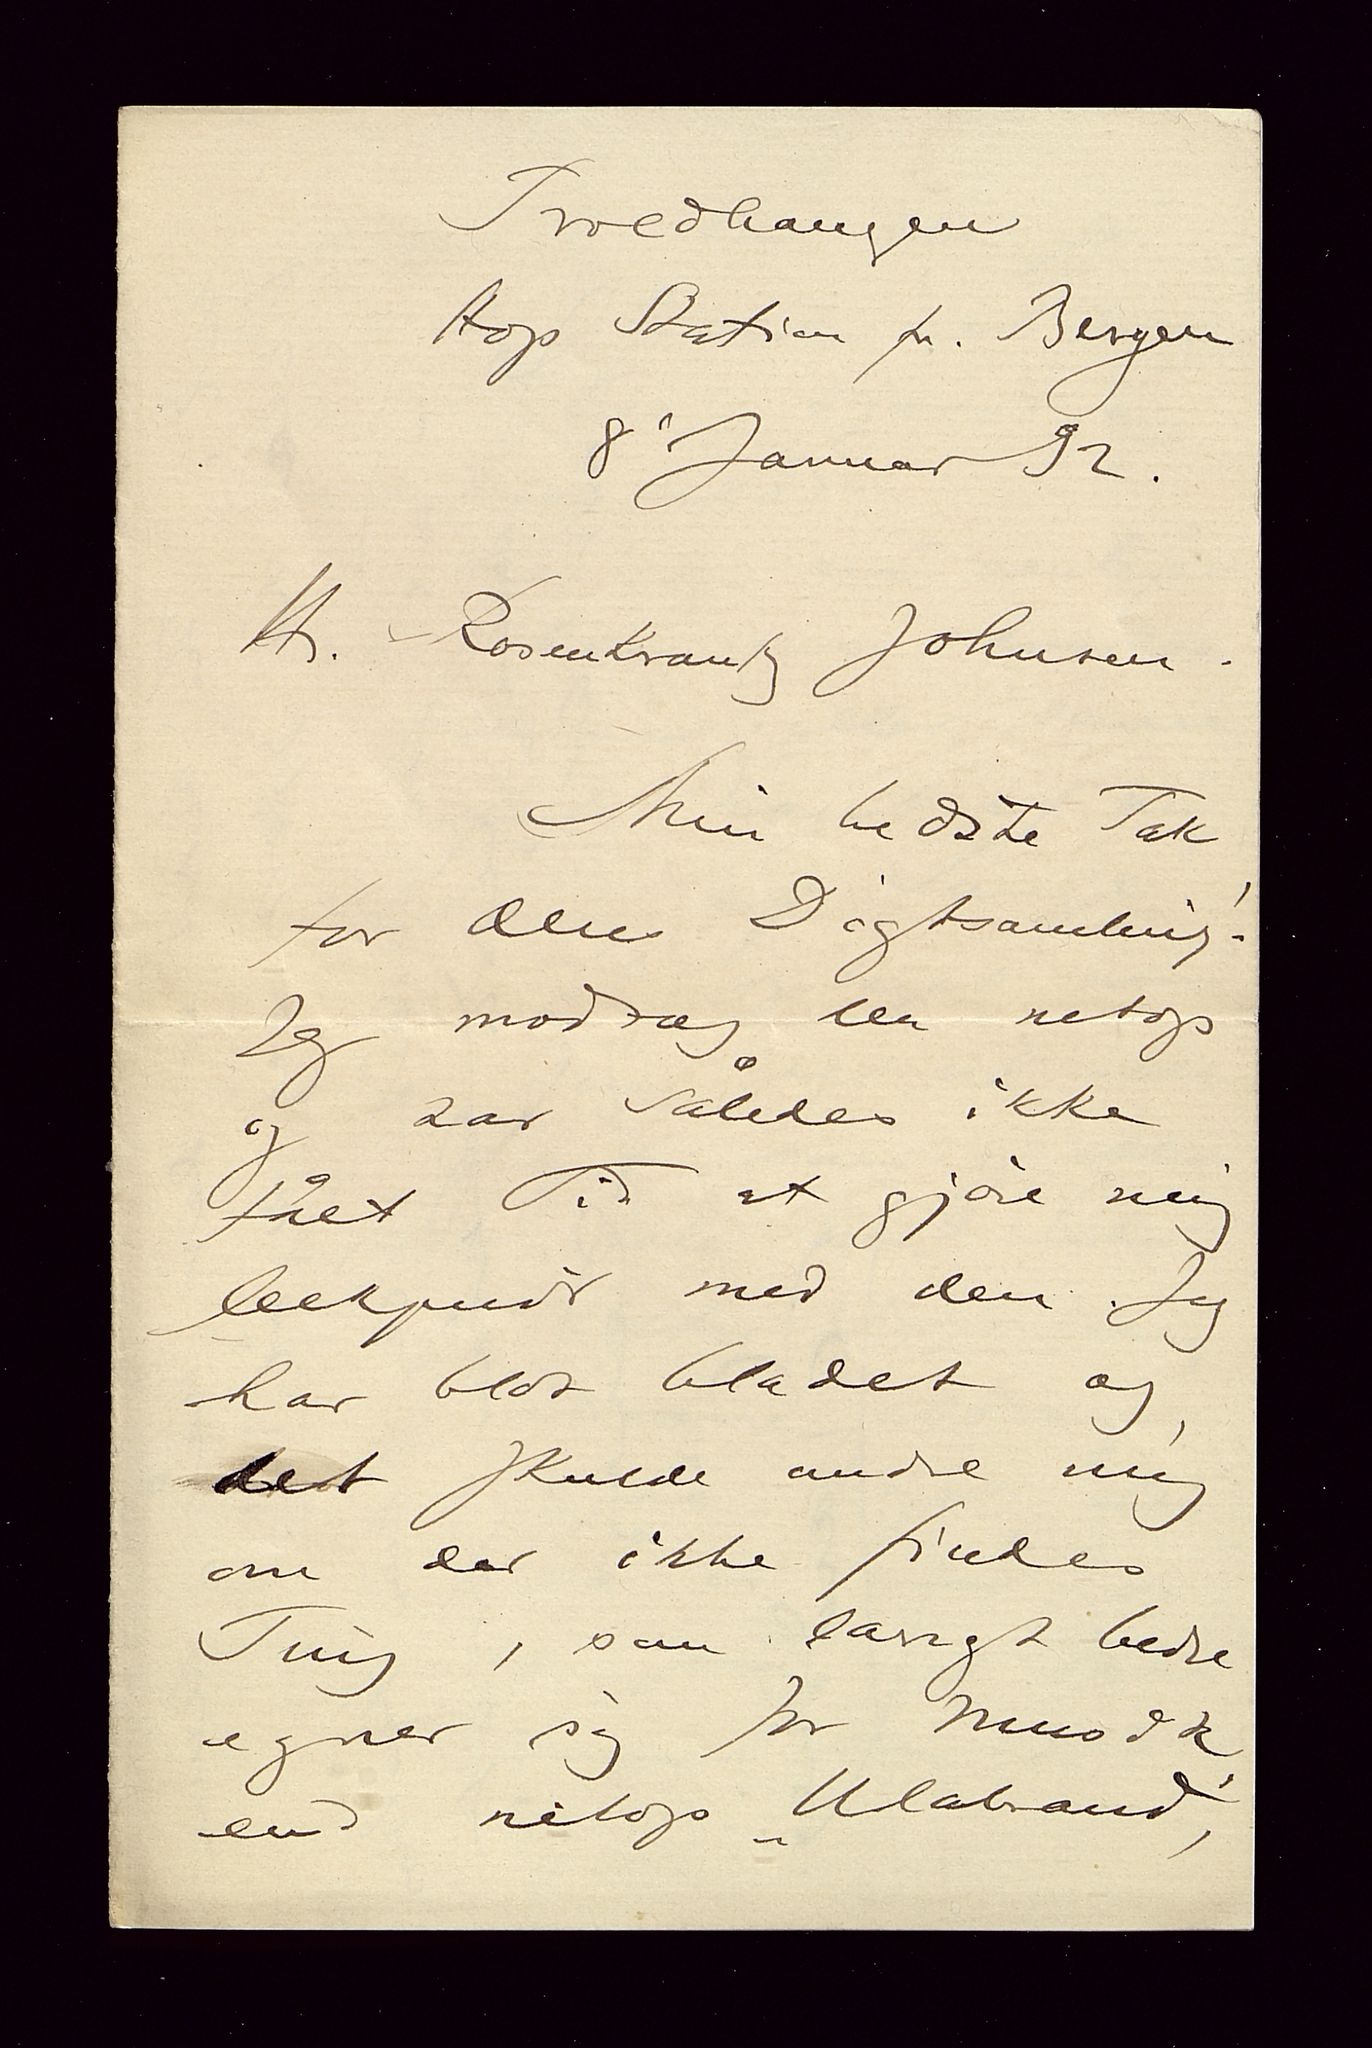 Troldhaugen
Hop Station pr. Bergen
8' Januar 92.
Hr. Rosenkrantz Johnsen.
Min bedste Tak
for Deres Digtsamling.
Jeg modtog den netop
og har således ikke
fået Tid at gjøre mig
bekjendt med den. Jeg
har blot bladet og
det skulde undre mig
om der ikke findes
Ting, som langt bedre
egner sig for Musik
end netop „Ulabrand",